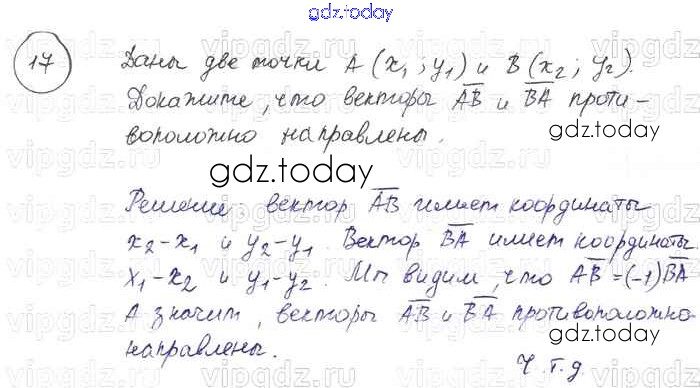 gdz.today
17 Даны две точки A (x₁ ; y₁) и B (x₂ ; y₂).
Докажите, что векторы AB и BA проти-
воположно направлены.
gdz.today
gdz.today
Решение: вектор AB имеет координаты
x₂-x₁ и y₂-y₁. Вектор BA имеет координаты
x₁-x₂ и y₁-y₂. Мы видим, что AB=(-1)BA
А значит, векторы AB и BA противоположно-
направлены.
gdz.today
Ч.т.д.
vipgdz.ru